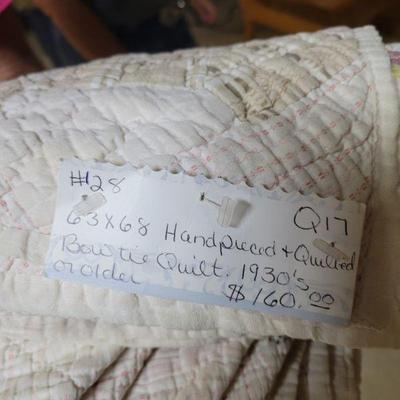 #128
Q17
63x68 Handpieced + Quilted
Bowtie Quilt. 1930's
or older
$160.00